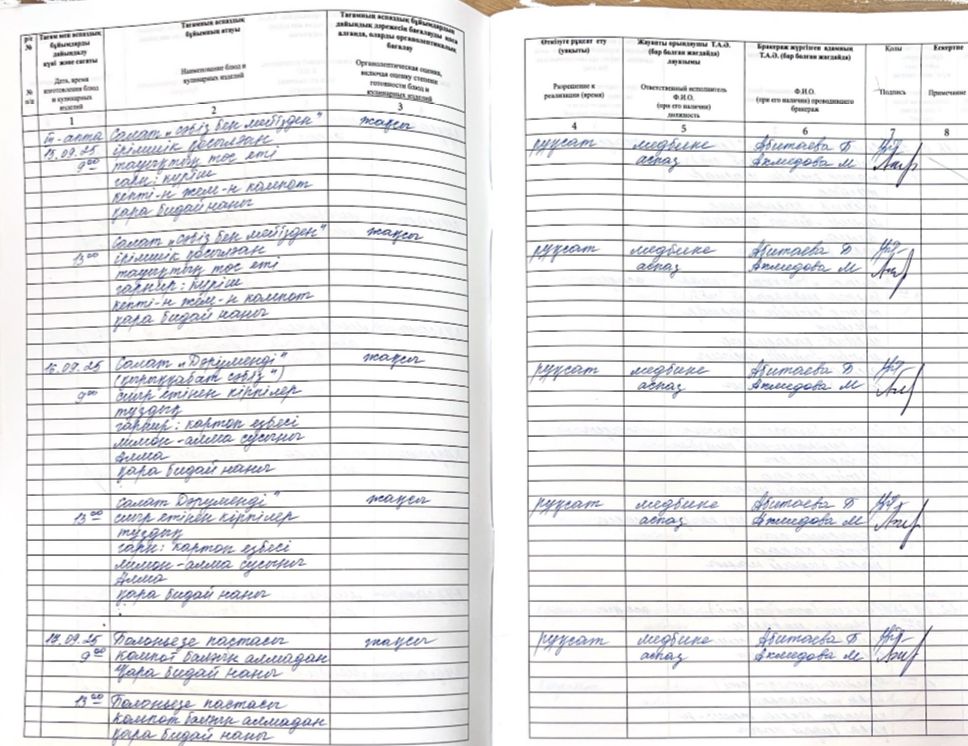 р/с №
Тағам мен аспаздық
бұйымдарды
дайындау
күні және сағаты
№ п/п
Дата, время
изготовления блюд
и кулинарных
изделий
Тағамның аспаздық
бұйымның атауы
Наименование блюд и
кулинарных изделий
Тағамның аспаздық бұйымдардың
дайындық дәрежесін бағалауды қоса
алғанда, оларды органолептикалық
бағалау
Органолептическая оценка,
включая оценку степени
готовности блюд и
кулинарных изделий
Өткізуге рұқсат ету
(уақыты)
Разрешение к
реализации (время)
Жауапты орындаушы Т.А.Ә.
(бар болған жағдайда)
лауазымы
Ответственный исполнитель
Ф.И.О.
(при его наличии)
должность
Бракераж жүргізген адамның
Т.А.Ә. (бар болған жағдайда)
Ф.И.О.
(при его наличии) проводившего
бракераж
Қолы
Подпись
Ескертпе
Примечание
1 2 3 4 5 6 7 8
апта Салат „сәбіз бен мейізден" жақсы рұқсат медбике Абитаева Б
15.09.25 ірімшік қосылған аспаз Ахмедова М
9⁰⁰ тауықтың төс еті
гарн: күріш
кепті-н жем-н компот
қара бидай наны
Салат „сәбіз бен мейізден" жақсы рұқсат медбике Абитаева Б
13⁰⁰ ірімшік қосылған аспаз Ахмедова М
тауықтың төс еті
гарнир: күріш
кепті-н жем-н компот
қара бидай наны
16.09.25 Салат „Дәруменді" жақсы рұқсат медбике Абитаева Б
(қырыққабат сәбіз") аспаз Ахмедова М
9⁰⁰ сиыр етінен кірпілер
тұздық
гарнир: картоп езбесі
лимон-алма сусыны
Алма
қара бидай наны
Салат Дәруменді" жақсы рұқсат медбике Абитаева Б
13⁰⁰ сиыр етінен кірпілер аспаз Ахмедова М
тұздық
гарн: картоп езбесі
лимон-алма сусыны
Алма
қара бидай наны
17.09.25 Болоньезе пастасы жақсы рұқсат медбике Абитаева Б
9⁰⁰ Компот балғын алмадан аспаз Ахмедова М
Қара бидай наны
13⁰⁰ Болоньезе пастасы
Компот балғын алмадан
Қара бидай наны